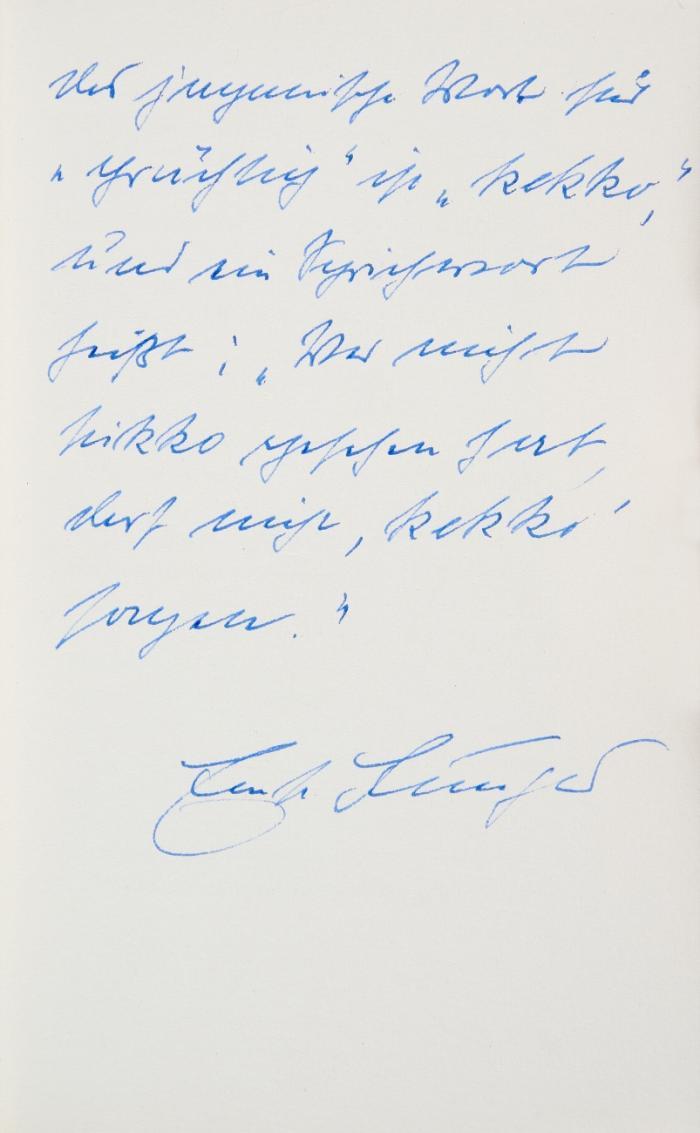 Das japanische Wort für
„prächtig“ ist „kekko,“
und ein Sprichwort
heißt: „Wer nicht
Nikko gesehen hat,
darf nicht ‚kekko‘
sagen.“
Ernst Jünger